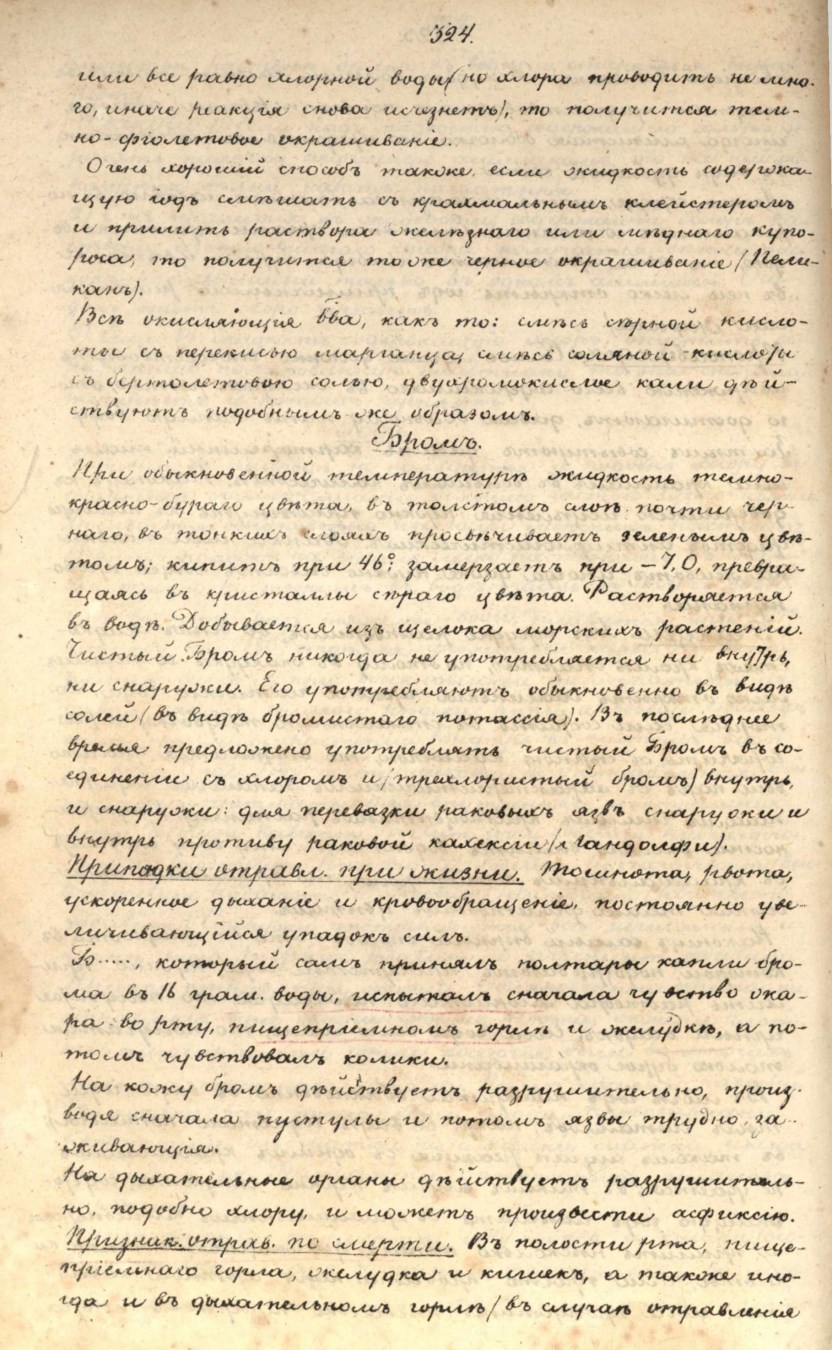 324.
или все равно хлорной воды (но хлора проводить не мно-
го, иначе реакція снова исчезнетъ), то получится тем-
но-фіолетовое окрашиваніе.
Очень хорошій способъ также, если жидкость содержа-
щую іодъ смѣшать съ крахмальнымъ клейстеромъ
и прилить раствора желѣзнаго или мѣднаго купо-
роса, то получится тоже черное окрашиваніе (Пели-
канъ).
Всѣ окисляющія в-ва, какъ то: смѣсь сѣрной кисло-
ты съ перекисью марганца, смѣсь соляной кислоты
съ бертолетовою солью, двухромокислое кали дѣй-
ствуютъ подобнымъ же образомъ.
Бромъ.
При обыкновенной температурѣ жидкость темно-
красно-бураго цвѣта, въ толстомъ слоѣ почти чер-
наго, въ тонкихъ слояхъ просвѣчиваетъ зеленымъ цвѣ-
томъ; кипитъ при 46°; замерзаетъ при – 7.0, превра-
щаясь въ кристаллы сѣраго цвѣта. Растворяется
въ водѣ. Добывается изъ щелока морскихъ растеній.
Чистый Бромъ никогда не употребляется ни внутрь,
ни снаружи. Его употребляютъ обыкновенно въ видѣ
солей (въ видѣ бромистаго потассія). Въ послѣднее
время предложено употреблять чистый Бромъ въ со-
единеніи съ хлоромъ и (треххлористый бромъ) внутрь,
и снаружи: для перевязки раковыхъ язвъ снаружи и
внутрь противу раковой кахексіи (Гандолфи).
Припадки отравл. при жизни. Тошнота, рвота,
ускоренное дыханіе и кровообращеніе, постоянно уве-
личивающійся упадокъ силъ.
Б....., который самъ принялъ полтары капли бро-
ма въ 16 грам. воды, испыталъ сначала чувство жа-
ра во рту, пищепріемномъ горлѣ и желудкѣ, а по-
томъ чувствовалъ колики.
На кожу бромъ дѣйствуетъ разрушительно, произ-
водя сначала пустулы и потомъ язвы трудно за-
живающія.
На дыхательные органы дѣйствуетъ разрушитель-
но, подобно хлору, и можетъ произвести асфиксію.
Признак. отрав. по смерти. Въ полости рта, пище-
пріемнаго горла, желудка и кишекъ, а также ино-
гда и въ дыхательномъ горлѣ (въ случаѣ отравленія